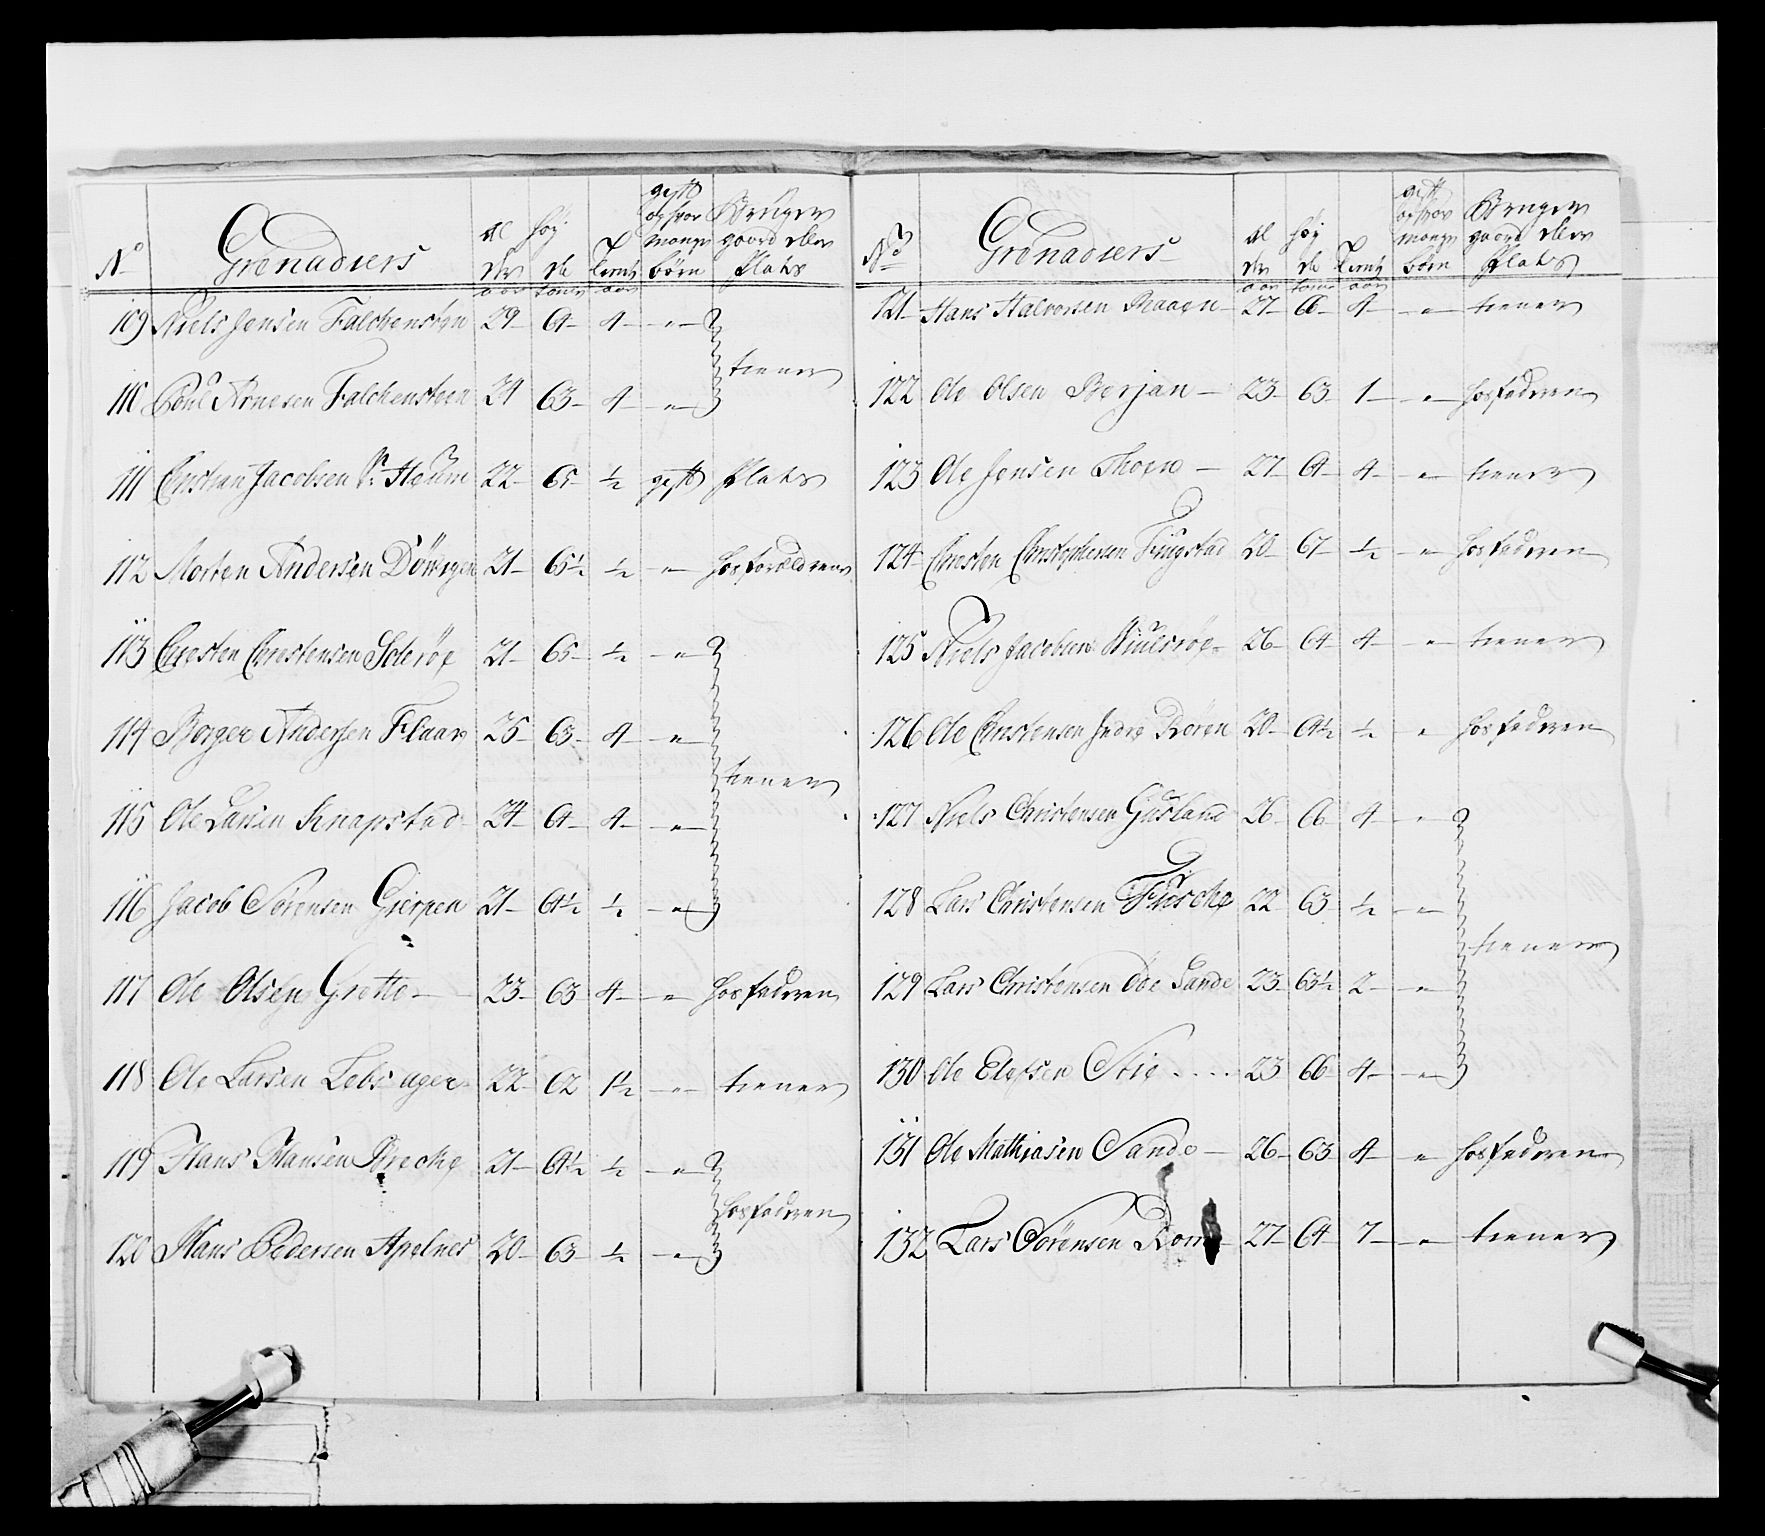 No Grenadiers Al der aar høy de tomr Exercerits aar gift og hvor mange børn Bruger gaard eller Plads
109 Niels Jensen Falchensteen 29 64 4 "
tiener
110 Poul Arnesen Falchensteen 24 63 4 "
111 Christian Jacobsen Heum 22 65 ½ gift Plads
112 Morten Andersen 21 65½ ½ " hos forældrene
113 Christen Christensen Solerøe 21 65 ½ "
114 Børger Andersen Flaar 25 63 4 "
tiener
115 Ole Larsen Knapstad 24 64 4 "
116 Jacob Sørensen Gierpen 21 64½ ½ "
117 Ole Olsen Grette 23 63 4 " hos faderen
118 Ole Larsen Lebs ager 22 62 1½ " tiener
119 Hans Hansen Breche 21 64½ ½ "
hos faderen
120 Hans Pedersen Apelnes 20 63 ½ "
No Grenadiers Al der aar høy de tomr aar gift og hvor mange børn Bruger gaard eller Plads
121 Hans Halvorsen Raaen 27 66 4 " tiener
122 Ole Olsen Berjan 23 63 1 " hos faderen
123 Ole Jensen Thoen 27 64 4 " tiener
124 Christen Christophersen Fuugstad 20 67 ½ " hos faderen
125 Niels Jacobsen Kiulsrøe 26 64 4 " tiener
126 Ole Christensen Indre Røren 20 64½ ½ " hos faderen
127 Niels Christensen Gusland 26 66 4 "
128 Lars Christensen Fusche 22 63 ½ "
tiener
129 Lars Christensen Øde Sande 23 63½ 2 "
130 Ole Elefsen Stie 23 66 4 "
131 Ole Mathiasen Sande 26 63 4 " hos faderen
132 Lars Sørensen 27 64 7 " tiener